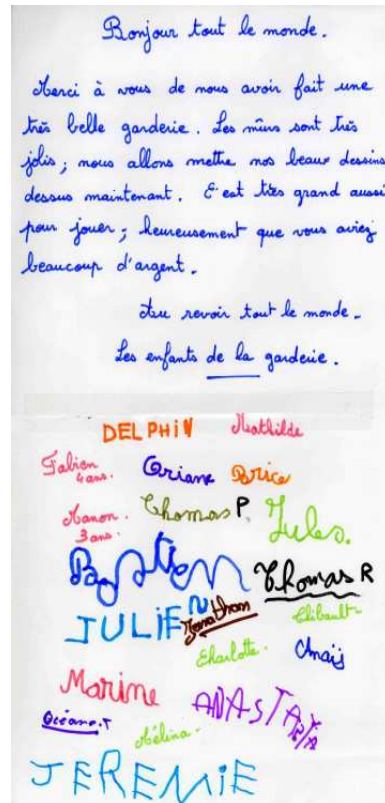 Bonjour tout le monde.
Merci à vous de nous avoir fait une
très belle garderie. Les murs sont très
jolis ; nous allons mettre nos beaux dessins
dessus maintenant. C'est très grand aussi
pour jouer ; heureusement que vous aviez
beaucoup d'argent.
Au revoir tout le monde.
Les enfants de la garderie.
DELPHIN Mathilde
Fabien Oriane Brice
4 ans.
Manon. Thomas P. Jules.
3 ans.
Bastien Thomas R
JULIEN Jonathan Thibault
Charlotte. Anaïs
Marine ANASTASIA
Océane.T
Mélina.
JEREMIE